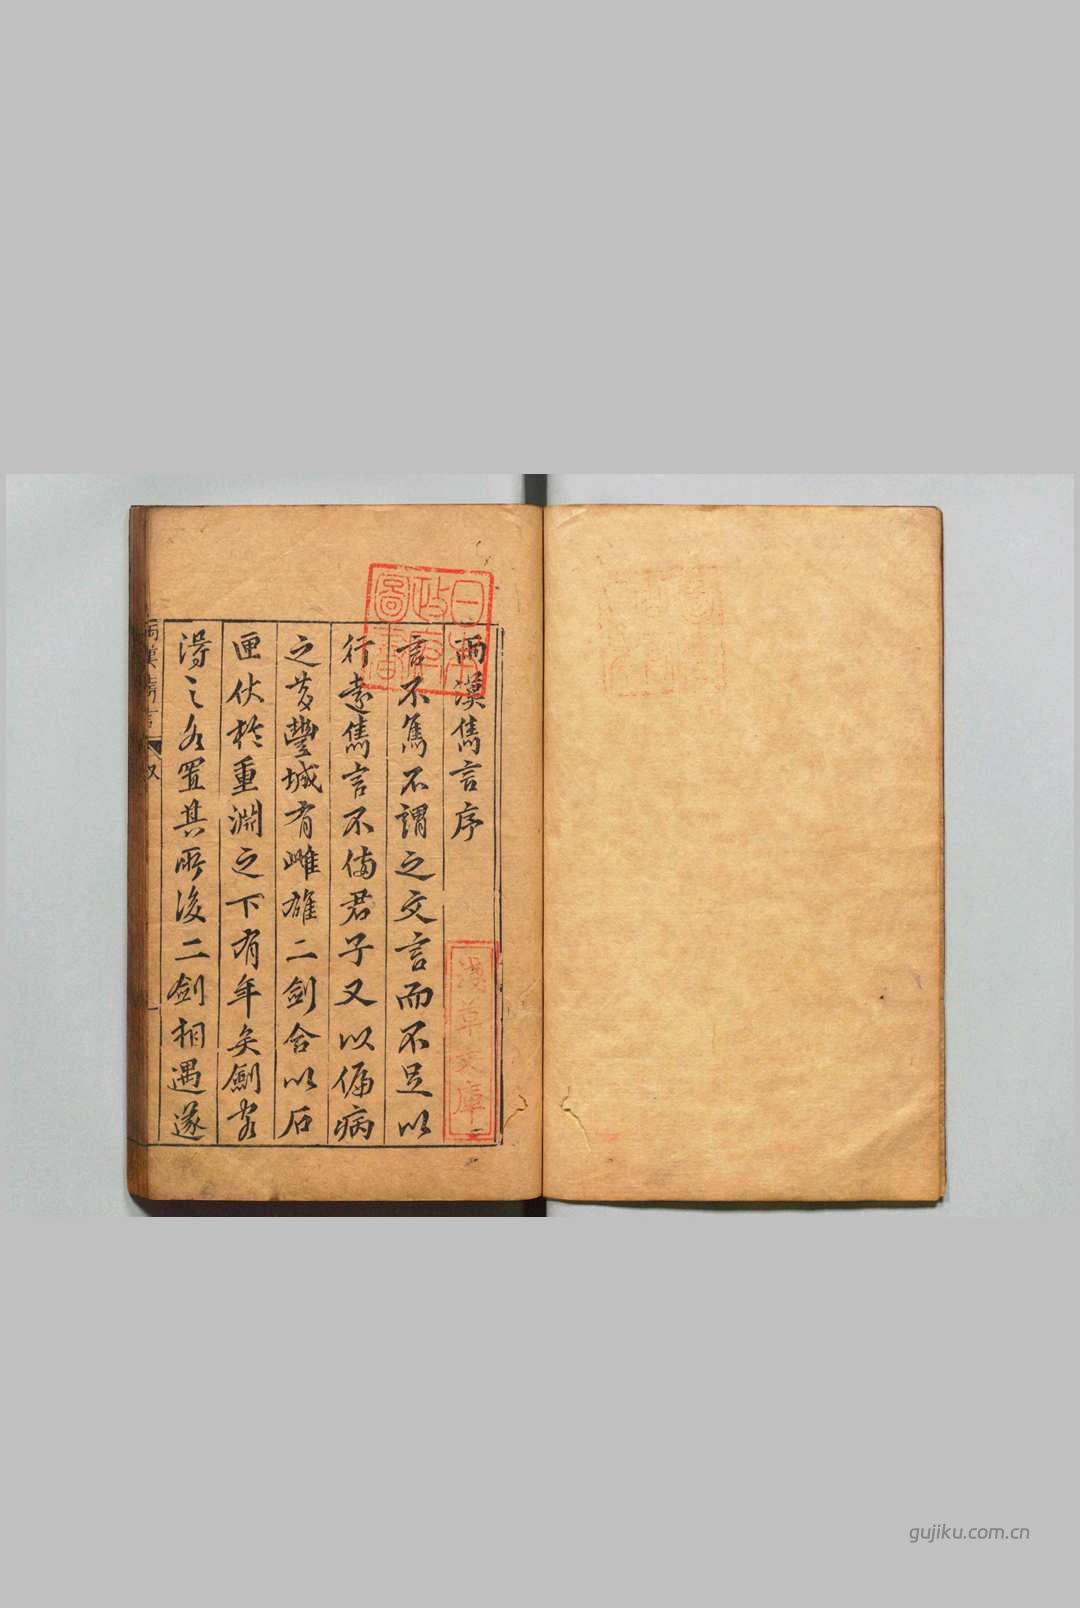 兩漢雋言序
言不雋不謂之文言而不足以
行遠雋言不備君子又以偏病
之昔豐城有雌雄二劍合以石
匣伏於重淵之下有年矣劍客
得之各置其所後二劍相遇遂
日本
政府
圖書
淺草文庫
gujiku.com.cn